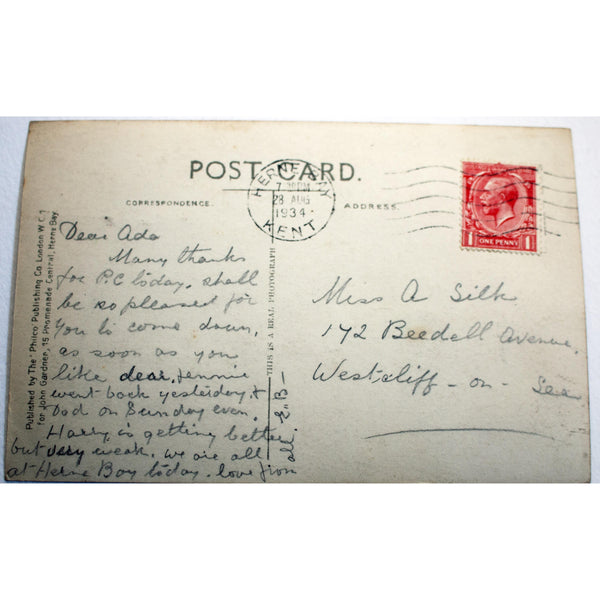 POST CARD.
CORRESPONDENCE.
ADDRESS.
HERNE BAY
7.30 PM
28 AUG
1934
KENT
ONE PENNY
1 1
Published by The "Philco" Publishing Co. London W C 1
for John Gardner, 15 Promenade Central, Herne Bay
THIS IS A REAL PHOTOGRAPH
Dear Ada
Many thanks
for P.C today. shall
be so pleased for
you to come down,
as soon as you
like dear, Jennie
went back yesterday &
Dad on Sunday even.
Harry is getting better
but very weak. we are all
at Herne Bay today. love from
all. E, B—
Miss A Silk
142 Beedell Avenue.
Westcliff - on - Sea